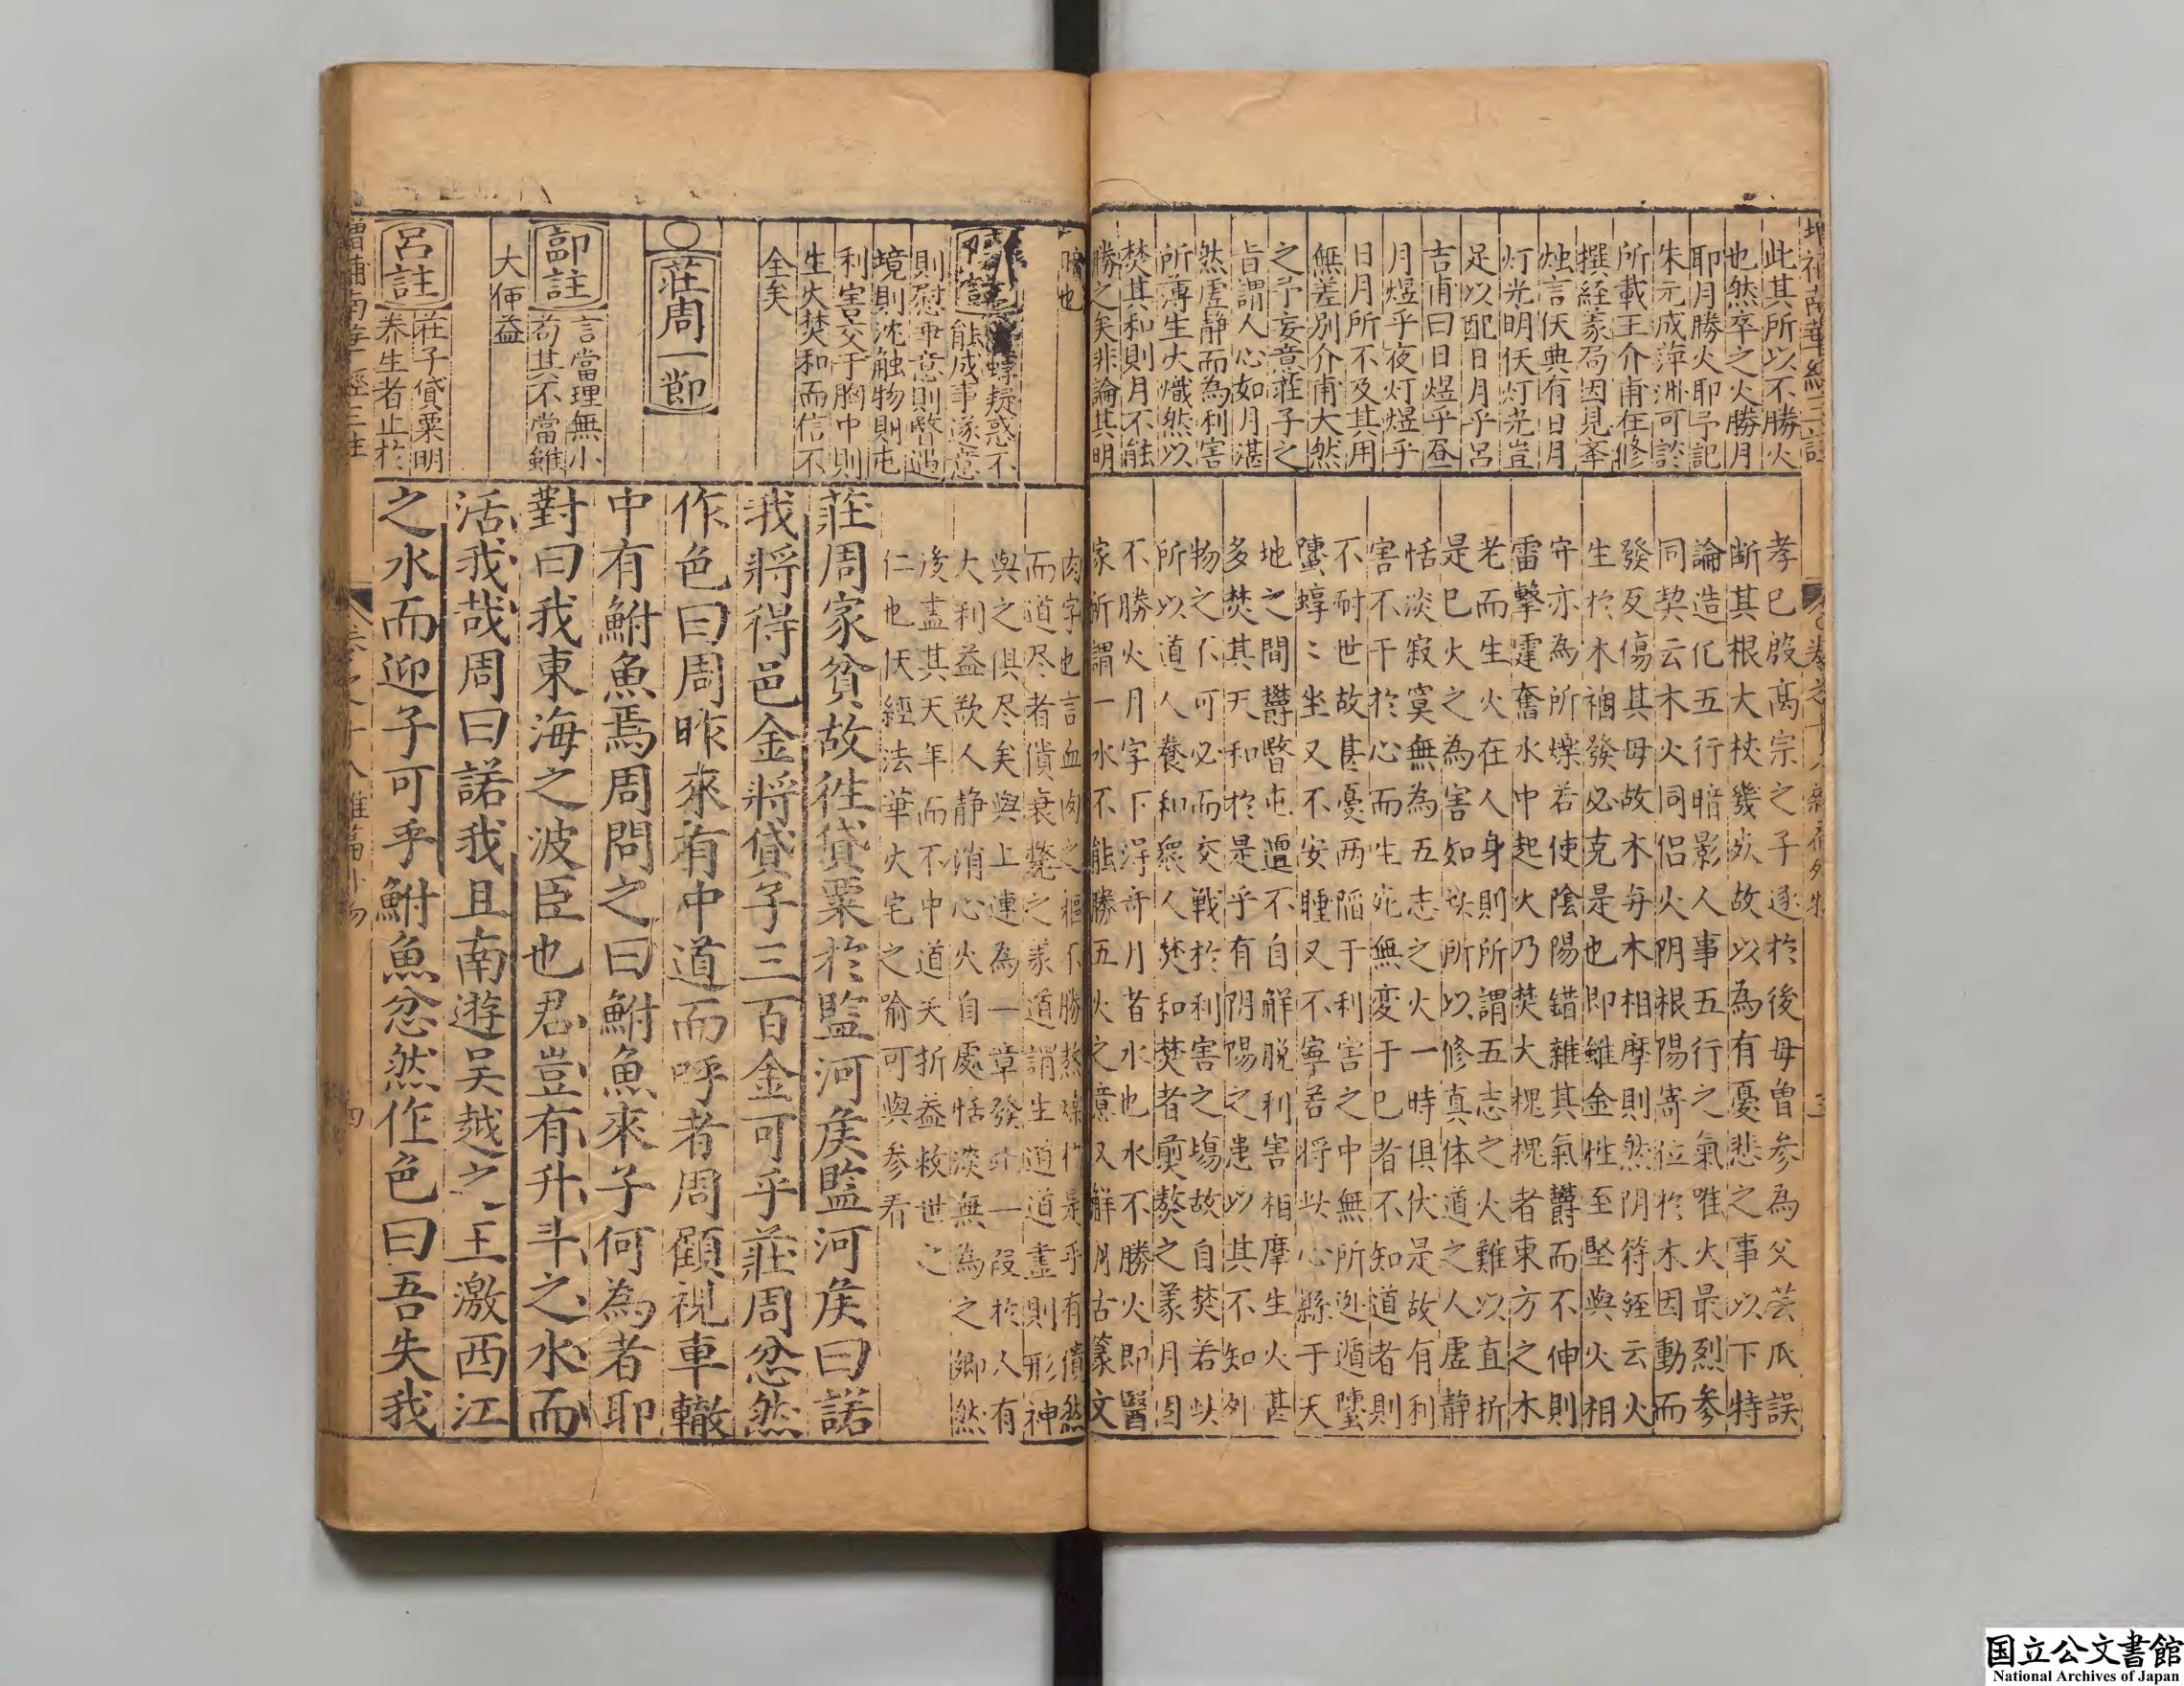 此其所以不勝火
也然卒之火勝月
耶月勝火耶予記
朱元成萍洲可談
所載王介甫在修
撰経義局因見舉
烛言仸典有日月
灯光明仸灯光豈
足以配日月乎呂
吉甫曰日煜乎昼
月煜乎夜灯煜乎
日月所不及其用
無差别介甫大然
之予妄意莊子之
旨謂人心如月湛
然虛静而為利害
所薄生火熾然以
焚其和則月不能
勝之矣非論其明
孝已殷高宗之子逐於後母曽参為父芸瓜誤
断其根大杖幾死故以為有憂悲之事以下特
論造化五行暗影人事五行之氣唯火最烈参
同契云木火同侣火阴根陽寄位於木因動而
發反傷其母故木与木相摩則然阴符經云火
生於木禍發必克是也即雖金性至堅與火相
守亦為所爍若使陰陽錯雜其氣欝而不伸則
雷擊霆奮水中起火乃焚大槐槐者東方之木
老而生火在人身則所謂五志之火難以直折
是已火之為害如此所以修真体道之人虛静
恬淡寂寞無為五志之火一時俱伏是故有利
害不干於心而生死無変于已者不知道者則
不耐世故甚憂两陷于利害之中無所迯遁螴
蜳蜳〻坐又不安睡又不寧若将此心縣于天
地之間欝暋屯邅不自解脱利害相摩生火甚
多焚其天和於是乎有阴陽之患以其不知外
物之不可必而交戦於利害之塲故自焚若此
所以道人養和衆人焚和焚者煎熬之義月因
不勝火月字下得奇月者水也水不勝火即醫
家所謂一水不能勝五火之意又解月古篆文
肉字也言血肉之軀不勝熬煉於是乎有僓然
而道尽者僓衰甤之義道謂生道道盡則形神
與之俱尽矣與上連為一章發此一段於人有
大利益歆人静消心火自處恬淡無為之鄉然
後盡其天年而不中道夭折益救世之
仁也仸經法華火宅之喻可與参看
則慰乖意則暋遇
境則沈触物則屯
利害交于胸中則
生火焚和而信不
全矣
莊周一節
郭註
言當理無小
苟其不當雖
大何益
呂註
莊子貸粟明
养生者止於
莊周家貧故徃貸粟於監河矦監河矦曰諾
我將得邑金將貸子三百金可乎莊周忿然
作色曰周昨來有中道而呼者周顧視車轍
中有鮒魚焉周問之曰鮒魚來子何為者耶
對曰我東海之波臣也君豈有升斗之水而
活我哉周曰諾我且南遊吴越之王激西江
之水而迎子可乎鮒魚忿然作色曰吾失我
国立公文書館
National Archives of Japan